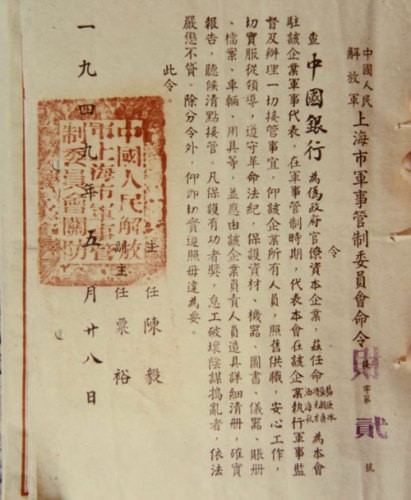 中國人民
解放軍
上海市軍事管制委員會命令
財字第貳號
令
查中國銀行為偽政府官僚資本企業，茲任命為本會
駐該企業軍事代表，在軍事管制時期，代表本會在該企業執行軍事監
督及辦理一切接管事宜。仰該企業所有人員，照舊供職，安心工作，
切實服從領導，遵守革命法紀，保護資材、機器、圖書、儀器、賬册
、檔案、車輛、用具等，並應由該企業負責人員造具詳細清册，確實
報告，聽候清點接管。凡保護有功者獎，怠工破壞陰謀搗亂者，依法
嚴懲不貸。除分令外，仰即切實遵照毋違為妥。
此令。
主任陳毅
副主任粟裕
中國人民解放
軍上海市軍事管
制委員會關防
一九四九年五月廿八日